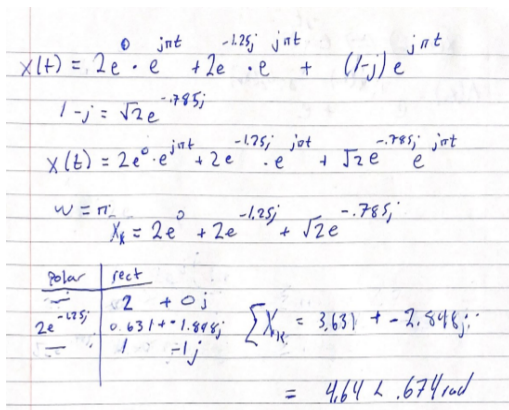 x(t) = 2e^0 · e^{jπt} + 2e^{-1.25j} · e^{jπt} + (1-j) e^{jπt}
1-j = √2e^{-.785j}
x(t) = 2e^0 · e^{jπt} + 2e^{-1.25j} · e^{jπt} + √2e^{-.785j} e^{jπt}
w = π
X_k = 2e^0 + 2e^{-1.25j} + √2e^{-.785j}
Polar | rect
— | 2 + 0j
2e^{-1.25j} | 0.631 + -1.898j
— | 1 -1j
∑X_k = 3.631 + -2.898j
= 4.64 ∠ .674 rad